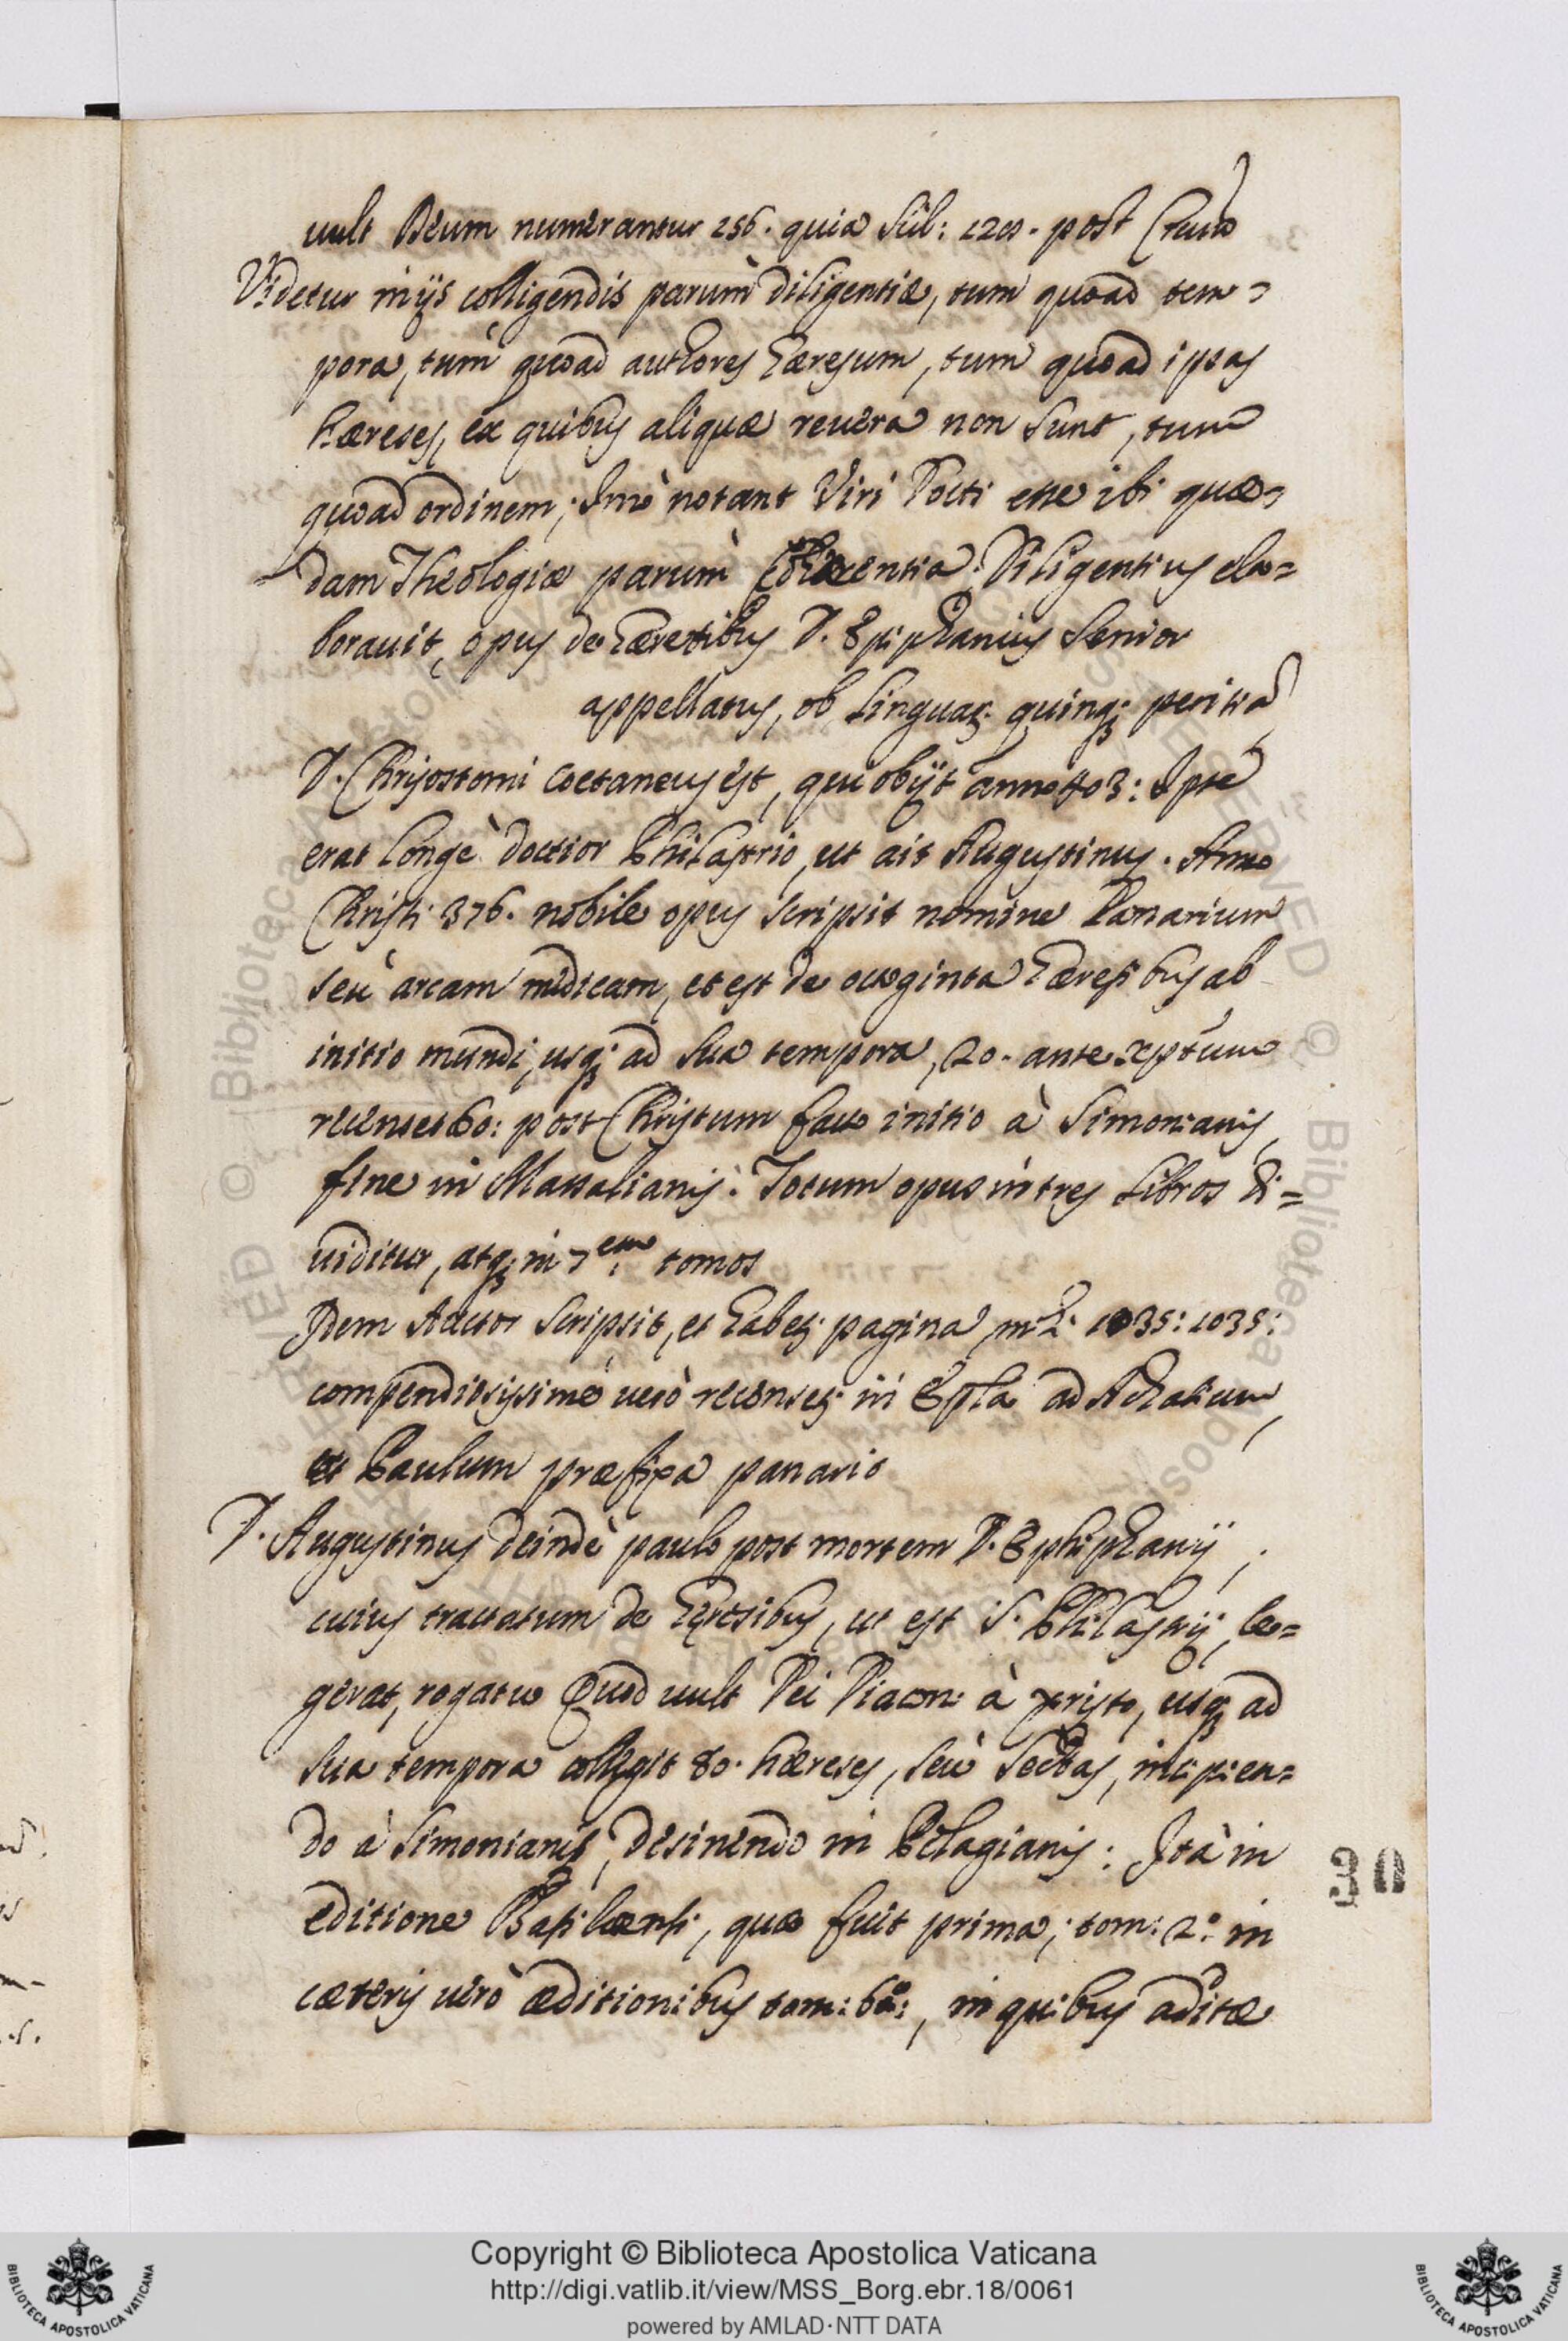 uult Deum numerantur 256. quia scil: 128. post
Videtur in ijs colligendis parum diligentiæ, tum quoad tem=
pora, tum quoad authores hæresum, tum quoad ipsas
hæreses, ex quibus aliquæ reuera non sunt, tum
quoad ordinem; Imò notant Viri Docti esse ibi quæ=
dam Theologiæ parum cohærentia. Diligentius ela=
borauit, opus de hæresibus D. Epiphanius Senior
appellatus, ob linguar. quinq; peritiã
D. Chrysostomi coetaneus est, qui obijt anno 403: Ipse
erat longè doctior Philastrio, ut ait Augustinus. Anno
Christi 376. nobile opus scripsit nomine Panarium
seu arcam medicam, et est de octoginta hæresibus ab
initio mundi, usq; ad sua tempora, 20. ante xptum
recenset 60: post Christum facto initio à Simonianis,
fine in Massalianis. Totum opus in tres libros di=
uiditur, atq; in 7em. tomos
Idem Auctor scripsit, et habet. pagina 1035: 1035:
compendiosissimè uerò recenset. in Epla ad Achatium,
et Paulum præfixa panario
D. Augustinus deindè paulo post mortem D. Ephiphanij,
cuius tractatum de hæresibus, ut est S. Philastrij, le=
gerat, rogatu Quod uult Dei Diacon: à xpristo, usq; ad
sua tempora collegit 80. hæreses, seu sectas, incipien=
do à Simonianis, desinendo in Pelagianis: Ità in
editione Basilænsi, quæ fuit prima, tom: 2.º in
cæteris uerò æditionibus tom: 6º:, in quibus aditæ
30
Copyright © Biblioteca Apostolica Vaticana
http://digi.vatlib.it/view/MSS_Borg.ebr.18/0061
powered by AMLAD·NTT DATA